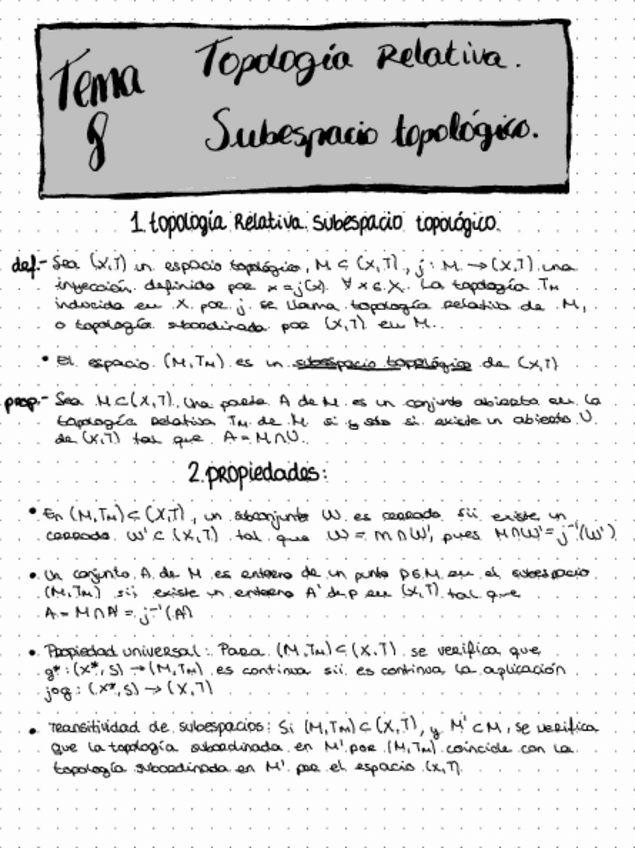 Tema
8
Topología Relativa.
Subespacio topológico.
1. Topología Relativa. Subespacio topológico.
def.- Sea (X,T) un espacio topológico, M ⊂ (X,T), j: M → (X,T) una
inyección definida por x = j(x) ∀ x ∈ X. La topología T_M
inducida en X por j se llama topología relativa de M,
o topología subordinada por (X,T) en M.
• El espacio (M,T_M) es un subespacio topológico de (X,T)
prop.- Sea M ⊂ (X,T). Una parte A de M es un conjunto abierto en la
topología relativa T_M de M si y sólo si existe un abierto U
de (X,T) tal que A = M∩U.
2. Propiedades:
• En (M,T_M) ⊂ (X,T), un subconjunto W es cerrado sii existe un
cerrado W' ⊂ (X,T) tal que W = M∩W', pues M∩W' = j⁻¹(W')
• Un conjunto A de M es entorno de un punto p∈M en el subespacio
(M,T_M) sii existe un entorno A' de p en (X,T) tal que
A = M∩A' = j⁻¹(A')
• Propiedad universal: Para (M,T_M) ⊂ (X,T) se verifica que
g*: (X*,S) → (M,T_M) es continua sii es continua la aplicación
jog: (X*,S) → (X,T)
• Transitividad de subespacios: Si (M,T_M) ⊂ (X,T), y M' ⊂ M, se verifica
que la topología subordinada en M' por (M,T_M) coincide con la
topología subordinada en M' por el espacio (X,T).